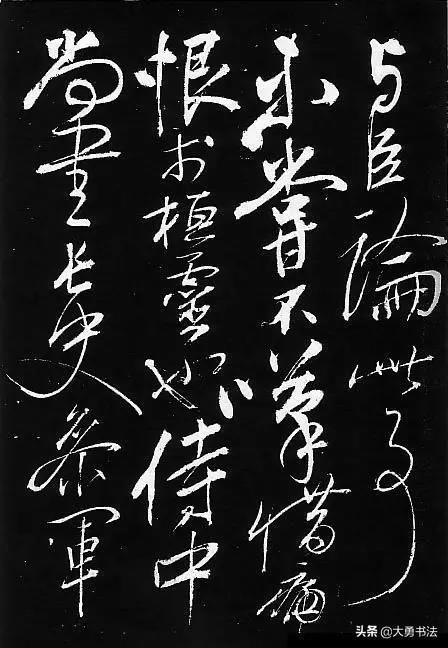 与臣論此事
未嘗不嘆惜痛
恨於桓靈也侍中
尚書長史參軍
头条 @大勇书法